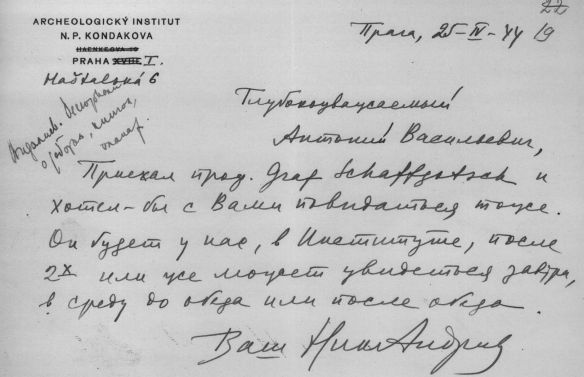 22
ARCHEOLOGICKÝ INSTITUT
N. P. KONDAKOVA
HAENKEOVA
PRAHA XVIII. I.
Haštalská 6
Прага, 25-IV-44 19
Глубокоуважаемый
Антоний Васильевич,
Приехал проф. Graf Schaffgotsch и
хотел-бы с Вами повидаться тоже.
Он будет у нас, в Институте, после
2х или же может увидеться завтра,
в среду до обеда или после обеда.
Ваш Ник Андреев